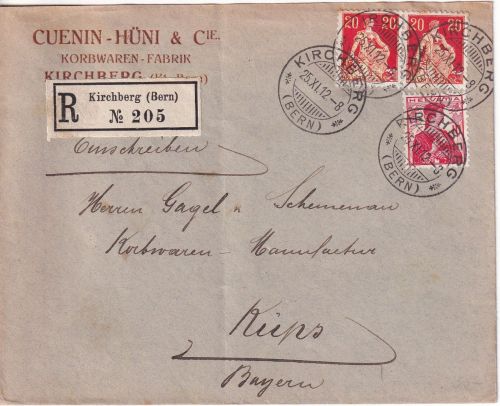 CUENIN-HÜNI & CIE.
KORBWAREN-FABRIK
KIRCHBERG (Kt. Bern)
R
Kirchberg (Bern)
№ 205
20 20
20
KIRCHBERG
25.XI.12-8
(BERN)
KIRCHBERG
KIRCHBERG
KIRCHBERG
(BERN)
Einschreiben
Herren Gagel & Schemenau
Korbwaren-Manufactur
Küps
Bayern